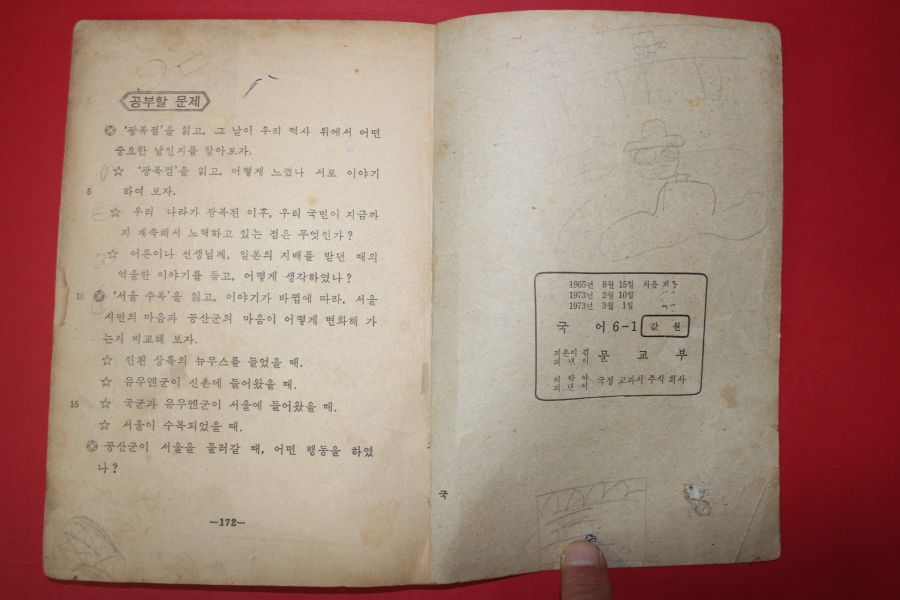 공부할 문제
'광복절'을 읽고, 그 날이 우리 역사 위에서 어떤
중요한 날인지를 알아보자.
☆ '광복절'을 읽고, 어떻게 느꼈나 서로 이야기
5 하여 보자.
☆ 우리 나라가 광복된 이후, 우리 국민이 지금까
지 계속해서 노력하고 있는 점은 무엇인가?
☆ 어른이나 선생님께, 일본의 지배를 받던 때의
억울한 이야기를 듣고, 어떻게 생각하였나?
10 '서울 수복'을 읽고, 이야기가 바뀜에 따라, 서울
시민의 마음과 공산군의 마음이 어떻게 변화해 가
는지 비교해 보자.
☆ 인천 상륙의 뉴우스를 들었을 때.
☆ 유우엔군이 신촌에 들어왔을 때.
15 ☆ 국군과 유우엔군이 서울에 들어왔을 때.
☆ 서울이 수복되었을 때.
공산군이 서울을 물러갈 때, 어떤 행동을 하였
나?
—172—
국
1965년 8월 15일 처음
1973년 2월 10일
1973년 3월 1일
국 어 6-1
값 원
지은이 겸 펴낸이 문교부
국정 교과서 주식 회사